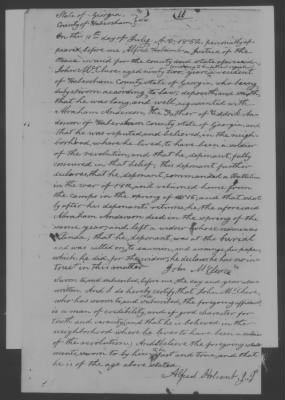 State of Georgia,
County of Habersham } SS.
On the 11th day of July A.D. 1852 personally ap-
peared before me Alfred Holcomb a Justice of the
Peace in and for the county and state aforesaid
John McClure, aged seventy two years, a resident
of Habersham County state of Georgia, who being
duly sworn according to law, deposeth and saith
that he was long, and well acquainted with
Abraham Anderson, the Father of
derson of Habersham County state of Georgia and
that he was reputed and believed, in the neigh-
borhood, where he lived, to have been a soldier
of the revolution, and that he deponent fully
concurred in that belief, this deponent further
declares, that he, deponent, commanded a Battalion
in the war of 1812, and returned home from
the camps in the spring of 1815, and that short
ly after his, deponent's return, he, the aforesaid
Abraham Anderson died in the spring of the
same year, and left a widow whose name was
that he, deponent, was at the burial
and was called on, to examine, and arrange, his papers,
which he did for the widow, he declares he has no in-
terest in this matter. John McClure
Sworn to, and subscribed, before me, the day and year above
written. And I do hereby certify, that John McClure,
who has sworn to, and subscribed, the foregoing affidavit,
is a man of credibility, and of good character for
truth and veracity, and that he is believed in the
neighborhood where he lives to have been
of the revolution, and I believe the foregoing state-
ments, sworn to by him, just and true, and that
he is of the age above stated.
Alfred Holcomb, J.P.